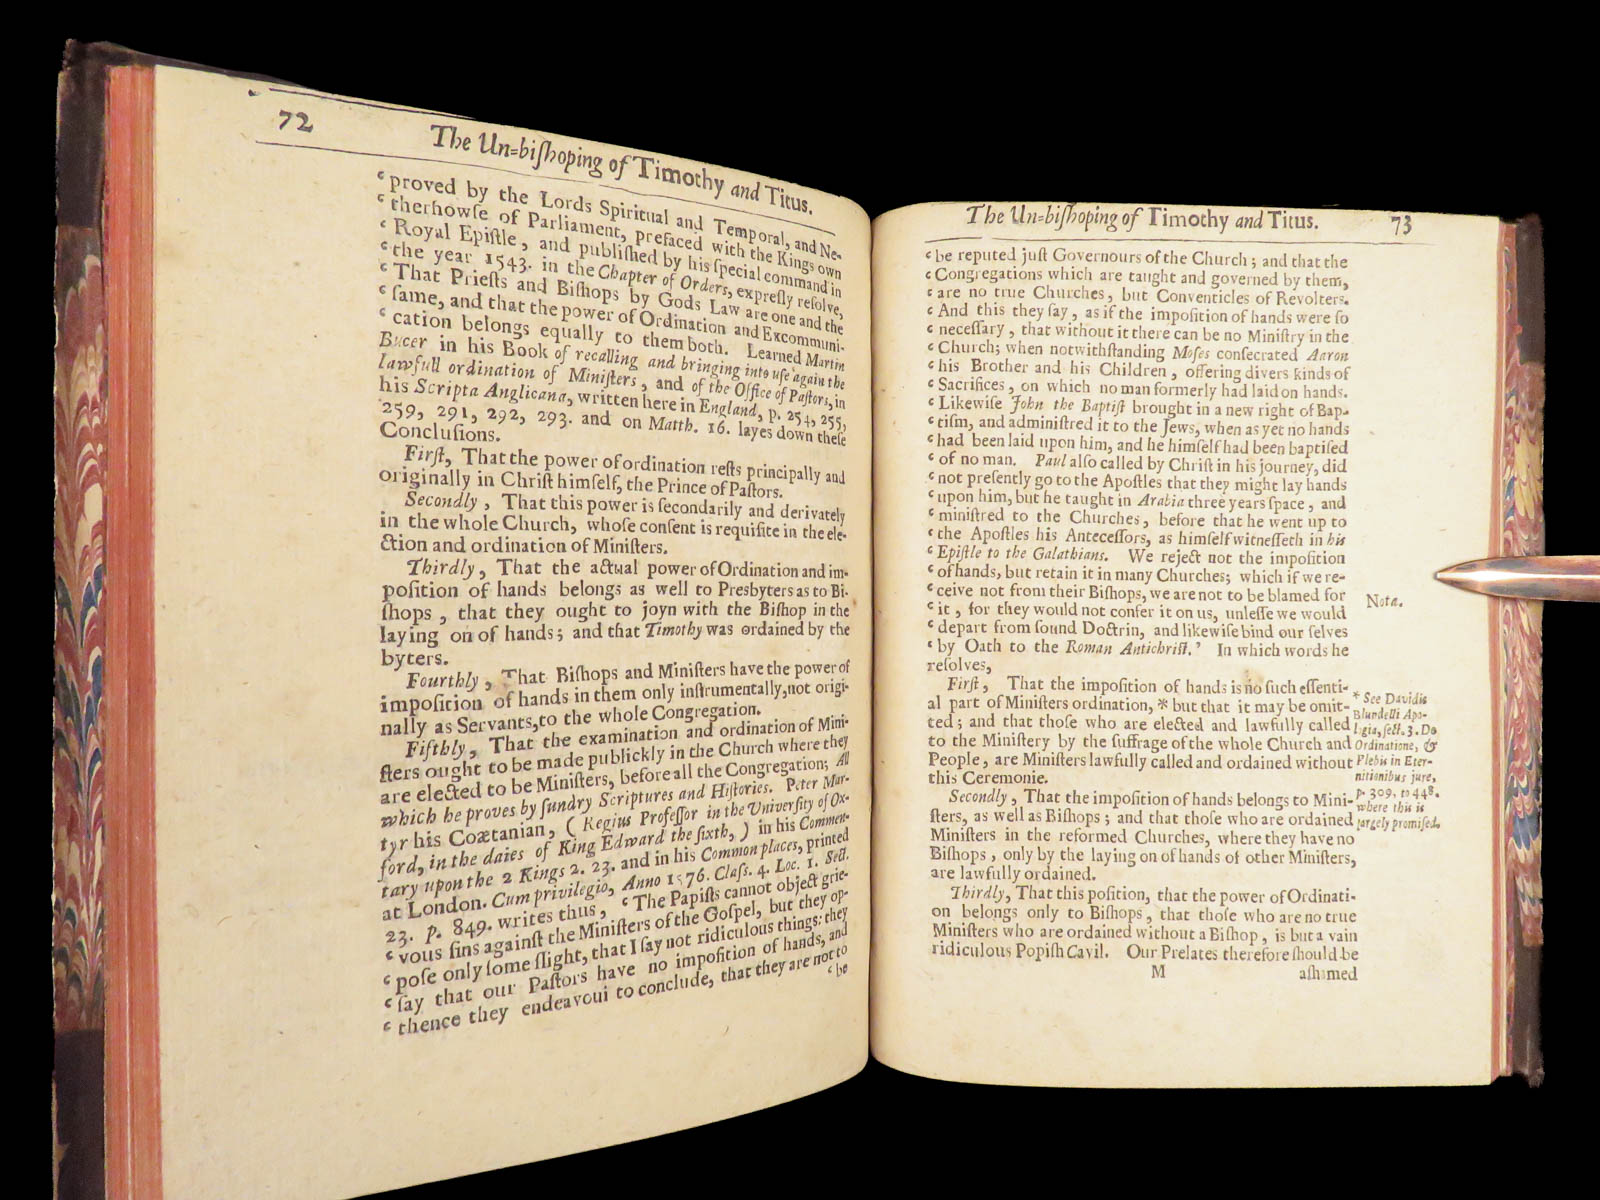 72
The Un-biſhoping of Timothy and Titus.
‘ proved by the Lords Spiritual and Temporal, and Ne-
‘ therhowſe of Parliament, prefaced with the Kings own
‘ Royal Epiſtle, and publiſhed by his ſpecial command in
‘ the year 1543. in the Chapter of Orders, expreſly reſolve,
‘ That Prieſts and Biſhops by Gods Law are one and the
‘ ſame, and that the power of Ordination and Excommuni-
‘ cation belongs equally to them both. Learned Martin
Bucer in his Book of recalling and bringing into uſe again the
lawfull ordination of Miniſters, and of the Office of Paſtors, in
his Scripta Anglicana, written here in England, p. 254, 255,
259, 291, 292, 293. and on Matth. 16. layes down theſe
Concluſions.
Firſt, That the power of ordination reſts principally and
originally in Chriſt himſelf, the Prince of Paſtors.
Secondly, That this power is ſecondarily and derivately
in the whole Church, whoſe conſent is requiſite in the ele-
ction and ordination of Miniſters.
Thirdly, That the actual power of Ordination and im-
poſition of hands belongs as well to Presbyters as to Bi-
ſhops, that they ought to joyn with the Biſhop in the
laying on of hands; and that Timothy was ordained by the
byters.
Fourthly, That Biſhops and Miniſters have the power of
impoſition of hands in them only inſtrumentally, not origi-
nally as Servants, to the whole Congregation.
Fifthly, That the examination and ordination of Mini-
ſters ought to be made publickly in the Church where they
are elected to be Miniſters, before all the Congregation; All
which he proves by ſundry Scriptures and Hiſtories. Peter Mar-
tyr his Coætanian, (Regius Profeſſor in the Univerſity of Ox-
ford, in the daies of King Edward the ſixth,) in his Commen-
tary upon the 2 Kings 2. 23. and in his Common places, printed
at London. Cum privilegio, Anno 1576. Claſſ. 4. Loc. 1. Sect.
23. p. 849. writes thus, ‘ The Papiſts cannot object grie-
‘ vous ſins againſt the Miniſters of the Goſpel, but they op-
‘ poſe only ſome ſlight, that I ſay not ridiculous things: they
‘ ſay that our Paſtors have no impoſition of hands, and
‘ thence they endeavour to conclude, that they are not to
‘ be
The Un-biſhoping of Timothy and Titus.
73
‘ be reputed juſt Governours of the Church; and that the
‘ Congregations which are taught and governed by them,
‘ are no true Churches, but Conventicles of Revolters.
‘ And this they ſay, as if the impoſition of hands were ſo
‘ neceſſary, that without it there can be no Miniſtry in the
‘ Church; when notwithſtanding Moſes conſecrated Aaron
‘ his Brother and his Children, offering divers kinds of
‘ Sacrifices, on which no man formerly had laid on hands.
‘ Likewiſe John the Baptiſt brought in a new right of Bap-
‘ tiſm, and adminiſtred it to the Jews, when as yet no hands
‘ had been laid upon him, and he himſelf had been baptiſed
‘ of no man. Paul alſo called by Chriſt in his journey, did
‘ not preſently go to the Apoſtles that they might lay hands
‘ upon him, but he taught in Arabia three years ſpace, and
‘ miniſtred to the Churches, before that he went up to
‘ the Apoſtles his Anteceſſors, as himſelf witneſſeth in his
‘ Epiſtle to the Galathians. We reject not the impoſition
‘ of hands, but retain it in many Churches; which if we re-
‘ ceive not from their Biſhops, we are not to be blamed for
‘ it, for they would not confer it on us, unleſſe we would
‘ depart from ſound Doctrin, and likewiſe bind our ſelves
‘ by Oath to the Roman Antichriſt.’ In which words he
reſolves,
Nota.
Firſt, That the impoſition of hands is no ſuch eſſenti-
al part of Miniſters ordination, * but that it may be omit-
ted; and that thoſe who are elected and lawfully called
to the Miniſtery by the ſuffrage of the whole Church and
People, are Miniſters lawfully called and ordained without
this Ceremonie.
Secondly, That the impoſition of hands belongs to Mini-
ſters, as well as Biſhops; and that thoſe who are ordained
Miniſters in the reformed Churches, where they have no
Biſhops, only by the laying on of hands of other Miniſters,
are lawfully ordained.
Thirdly, That this poſition, that the power of Ordinati-
on belongs only to Biſhops, that thoſe who are no true
Miniſters who are ordained without a Biſhop, is but a vain
ridiculous Popiſh Cavil. Our Prelates therefore ſhould be
M
aſhamed
* See Davidis
Blundelli Apo-
logia, ſect. 3. De
Ordinatione, &
Plebis in Eter-
nitionibus jure,
p. 309. to 448.
where this is
largely promiſed.